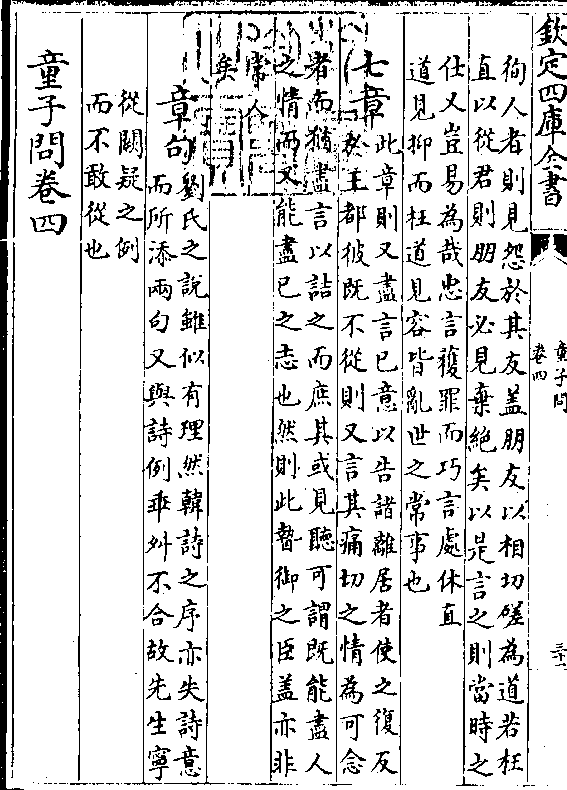 欽定四庫全書
童子問
卷四
徇人者則見怨於其友盖朋友以相切磋為道若枉
直以從君則朋友必見棄絶矣以是言之則當時之
仕又豈易為哉忠言獲罪而巧言處休直
道見抑而枉道見容皆亂世之常事也
七章此章則又盡言已意以告諸離居者使之復反
於王都彼既不從則又言其痛切之情為可念
者而猶盡言以詰之而庶其或見聽可謂既能盡人
之情而又能盡已之志也然則此暬御之臣盖亦非
常人
矣
章句劉氏之說雖似有理然韓詩之序亦失詩意
而所添兩句又與詩例乖舛不合故先生寧
從闕疑之例
而不敢從也
童子問卷四